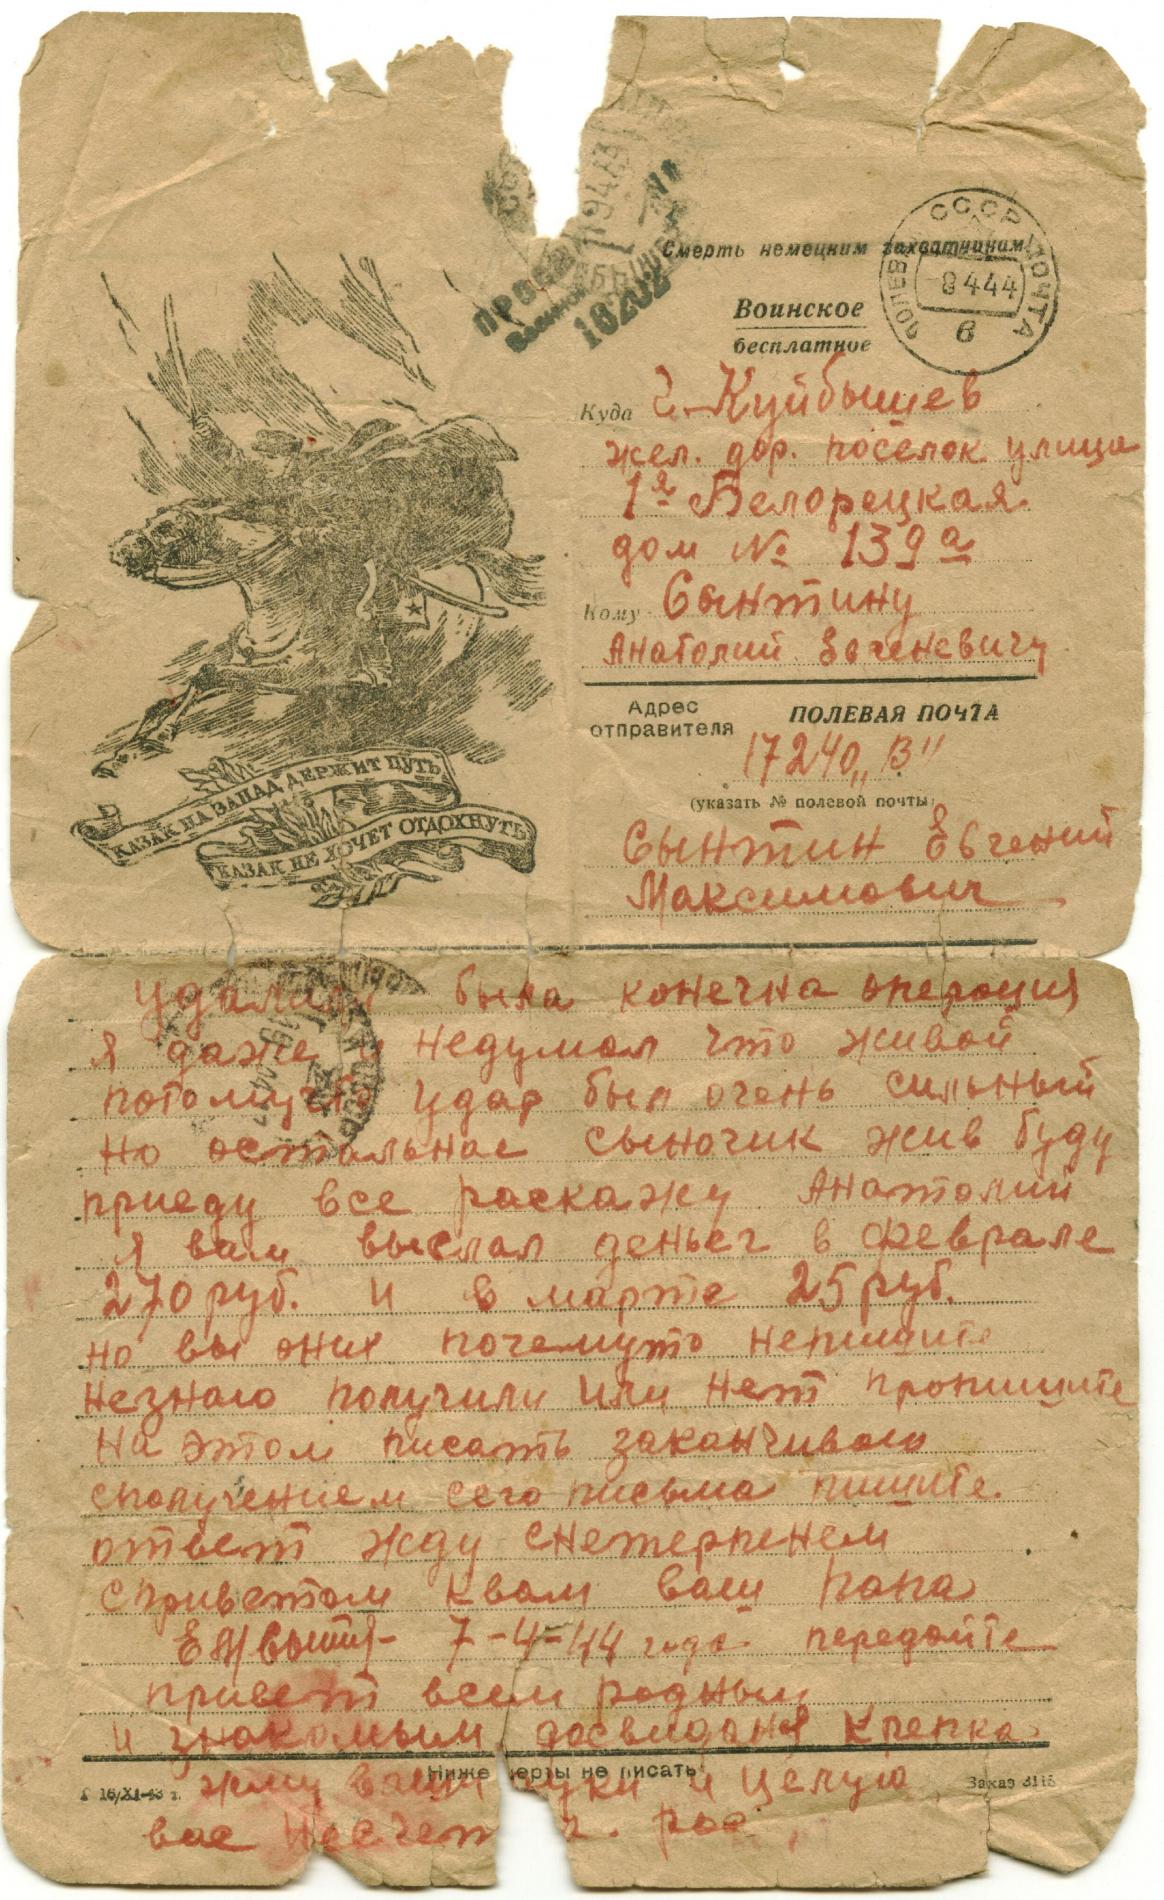 Смерть немецким захватчикам
СССР
ПОЛЕВ ПОЧТА
8 4 44
в
1944
ПРОС
18202
Воинское
бесплатное
Куда г. Куйбышев
жел. дор. посёлок улица
1я Белорецкая
дом № 139а
Кому Сынтину
Анатолий Евгеневичу
Адрес отправителя
ПОЛЕВАЯ ПОЧТА
17240 „В"
(указать № полевой почты)
Сынтин Евгений
Максимович
КАЗАК НА ЗАПАД ДЕРЖИТ ПУТЬ
КАЗАК НЕ ХОЧЕТ ОТДОХНУТЬ
была конечна операция
я даже и недумал что живой
потомучто удар был очень сильный
но остальное сыночик жив буду
приеду все раскажу Анатолий
я вам выслал деньег в феврале
270 руб. и в марте 25 руб.
но вы оних почемуто непишите
незнаю получили или нет пропишите
На этом писать заканчиваю
сполучением сего письма пишите.
ответ жду снетерпенем
сприветом квам ваш папа
7-4-44 года передайте
привет всем родным
и знакомым досвиданя крепка
Ниже черты не писать
Г 16/XI-43 г.
Заказ 3115
жму ваши руки и целую
вас несчет рас